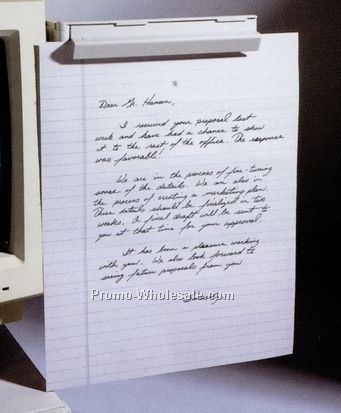 Dear Mr. Hansen,
I received your proposal last
week and have had a chance to show
it to the rest of the office. The response
was favorable!
We are in the process of fine-tuning
some of the details. We are also in
the process of creating a marketing plan.
These details should be finalized in two
weeks. A final draft will be sent to
you at that time for your approval.
It has been a pleasure working
with you. We also look forward to
seeing future proposals from you
Promo-Wholesale.com